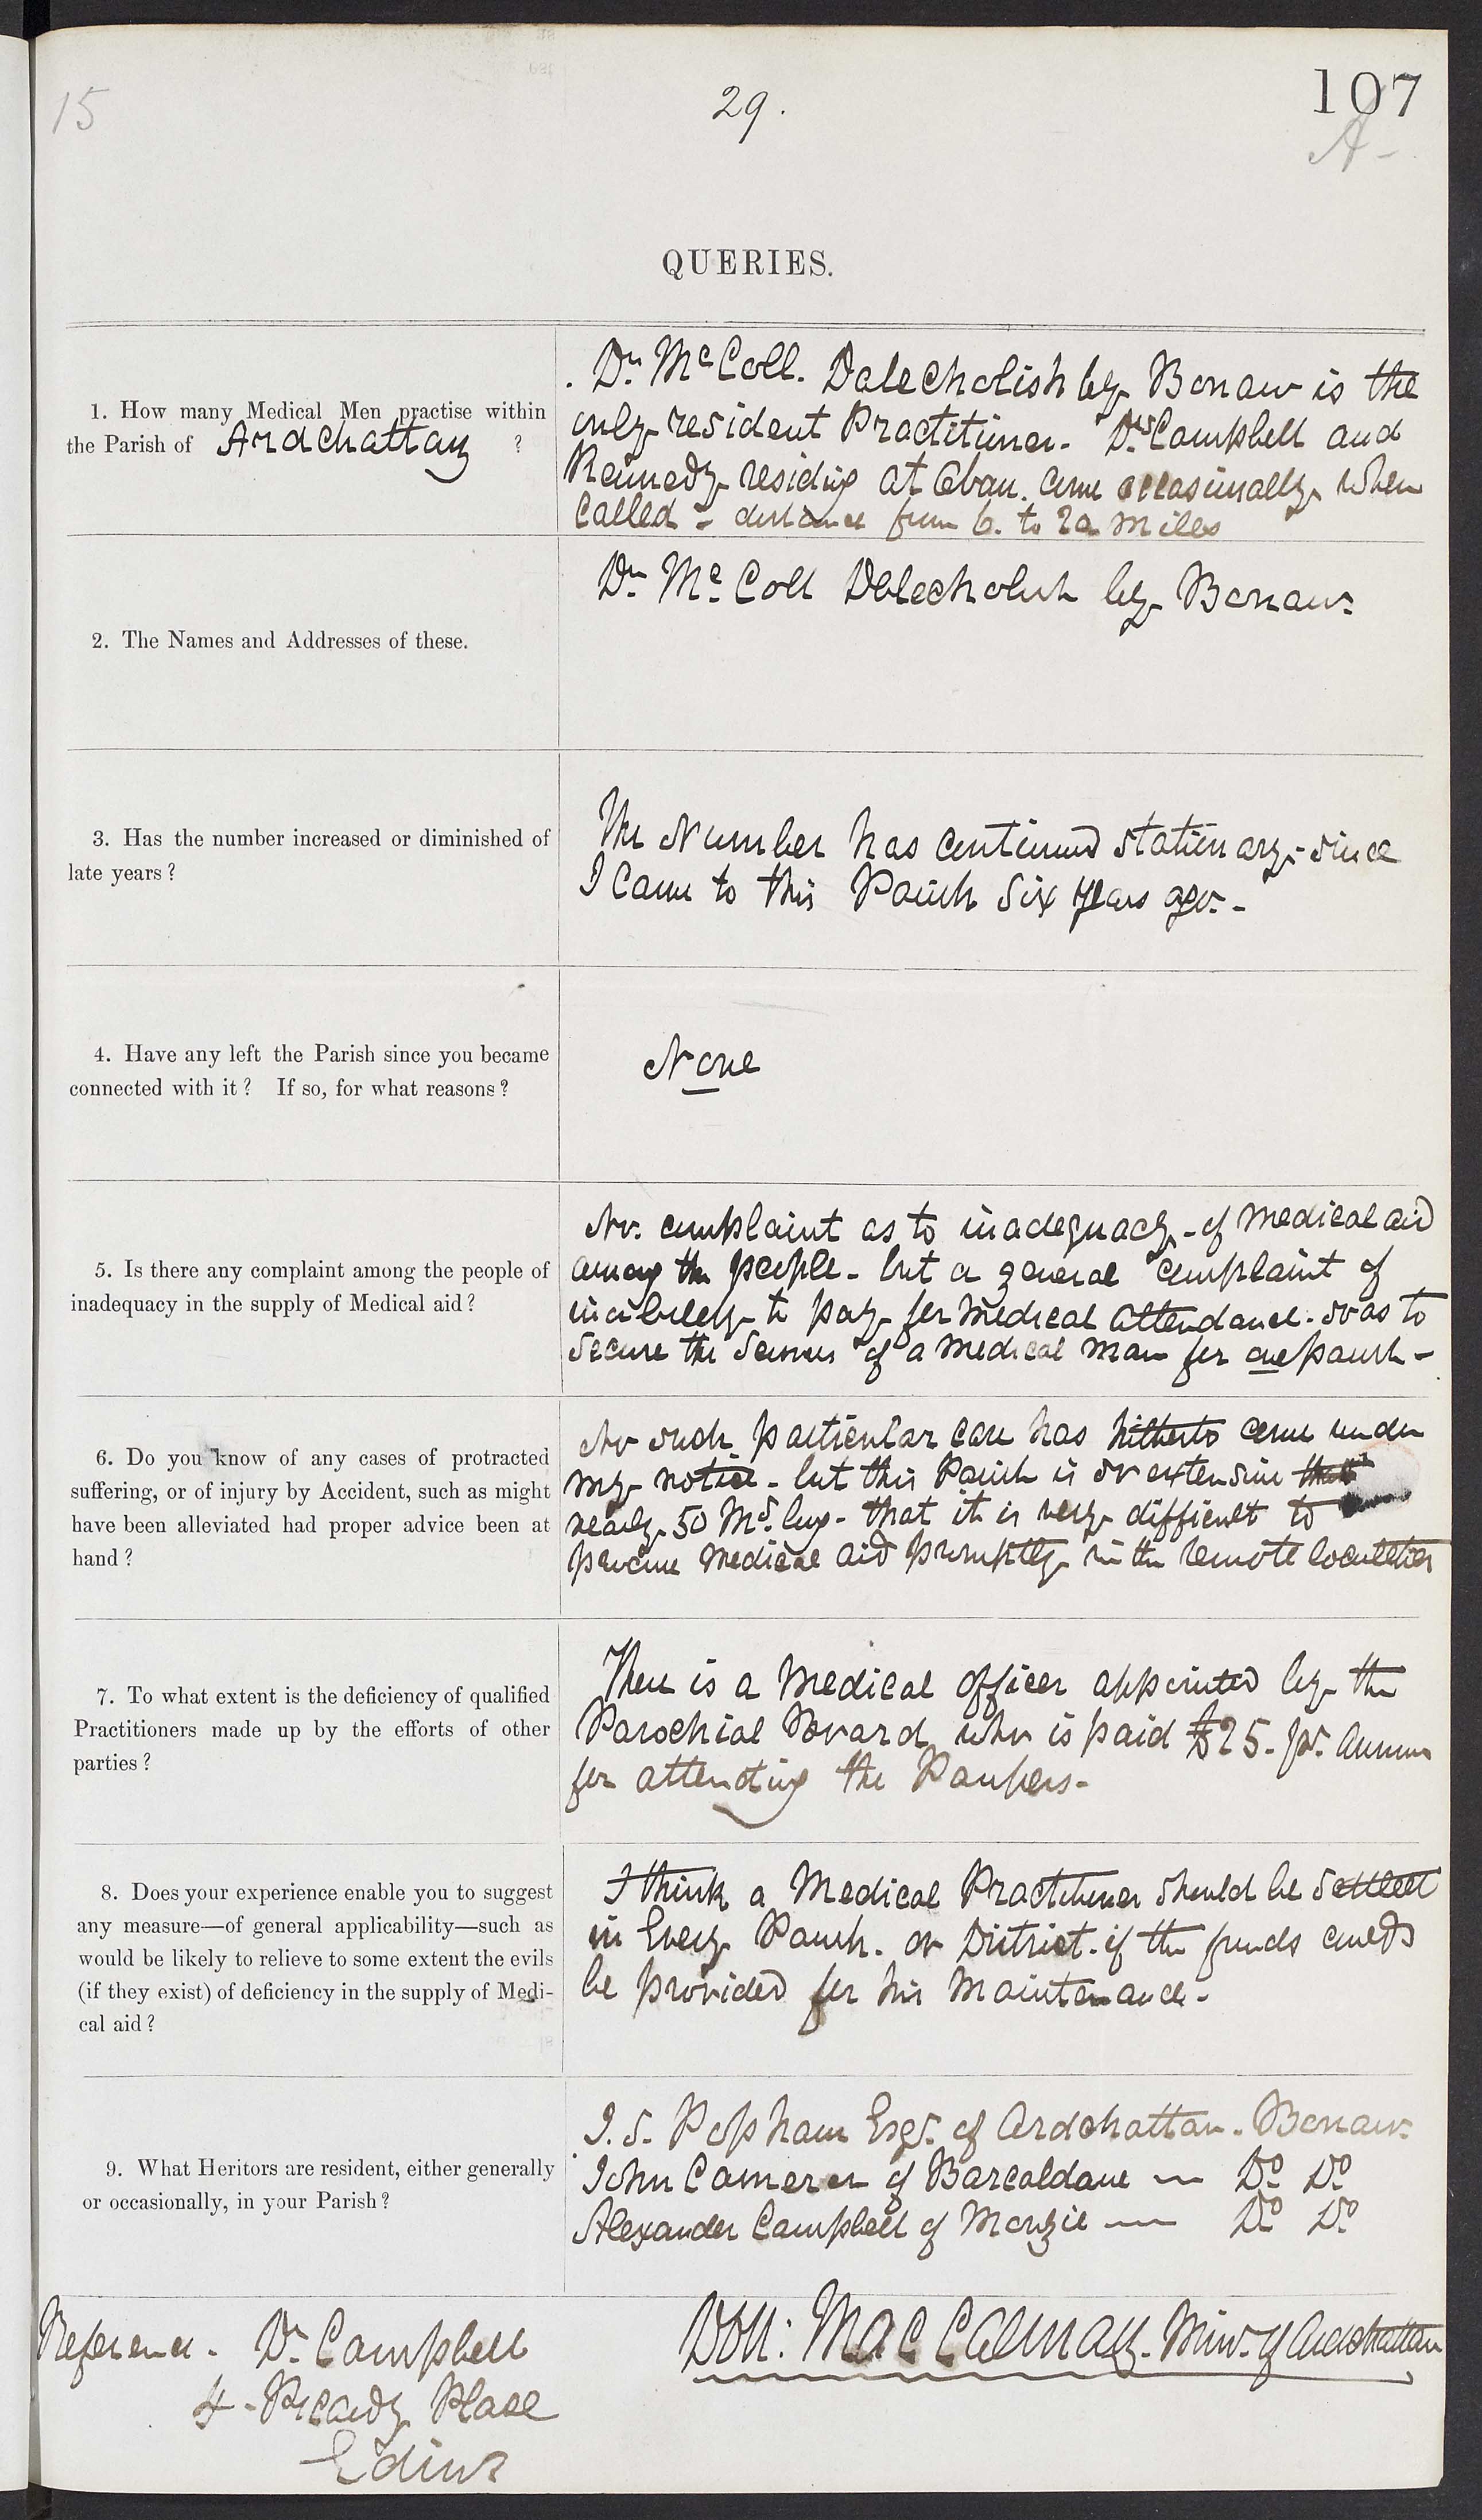 15
29.
107
A-
QUERIES.
1. How many Medical Men practise within
the Parish of Ardchattan ?
Dr. McColl. Dalecholish by Bonaw is the
only resident Practitioner. Drs. Campbell and
Kennedy residing at Oban. come occasionally when
called - distance from 6. to 20 miles
2. The Names and Addresses of these.
Dr. Mc.Coll Dalecholish by Bonaw.
3. Has the number increased or diminished of
late years?
The Number has continued stationary - since
I came to this Parish Six years ago. -
4. Have any left the Parish since you became
connected with it? If so, for what reasons?
None
5. Is there any complaint among the people of
inadequacy in the supply of Medical aid?
No. complaint as to inadequacy - of Medical aid
among the people - but a general complaint of
inability to pay for Medical attendance. so as to
secure the Services of a Medical man for one parish -
6. Do you know of any cases of protracted
suffering, or of injury by Accident, such as might
have been alleviated had proper advice been at
hand?
No such particular case has hitherto come under
my notice - but this Parish is so extensive
nearly 50 Ms. long - that it is very difficult to
procure Medical aid promptly in the remote localities
7. To what extent is the deficiency of qualified
Practitioners made up by the efforts of other
parties?
There is a Medical Officer appointed by the
Parochial Board who is paid £25. pr. Annum
for attending the Paupers -
8. Does your experience enable you to suggest
any measure—of general applicability—such as
would be likely to relieve to some extent the evils
(if they exist) of deficiency in the supply of Medi-
cal aid?
I think a Medical Practitioner should be settled
in Every Parish. or District. if the funds could
be provided for his Maintenance -
9. What Heritors are resident, either generally
or occasionally, in your Parish?
I. S. Popham Esqr. of Ardchattan. Bonaw.
John Cameron of Barcaldane — Do Do
Alexander Campbell of Monzie — Do Do
Reference. Dr. Campbell
4 - Picardy Place
Edinr
Don: MacCalman. Minr. of Ardchattan